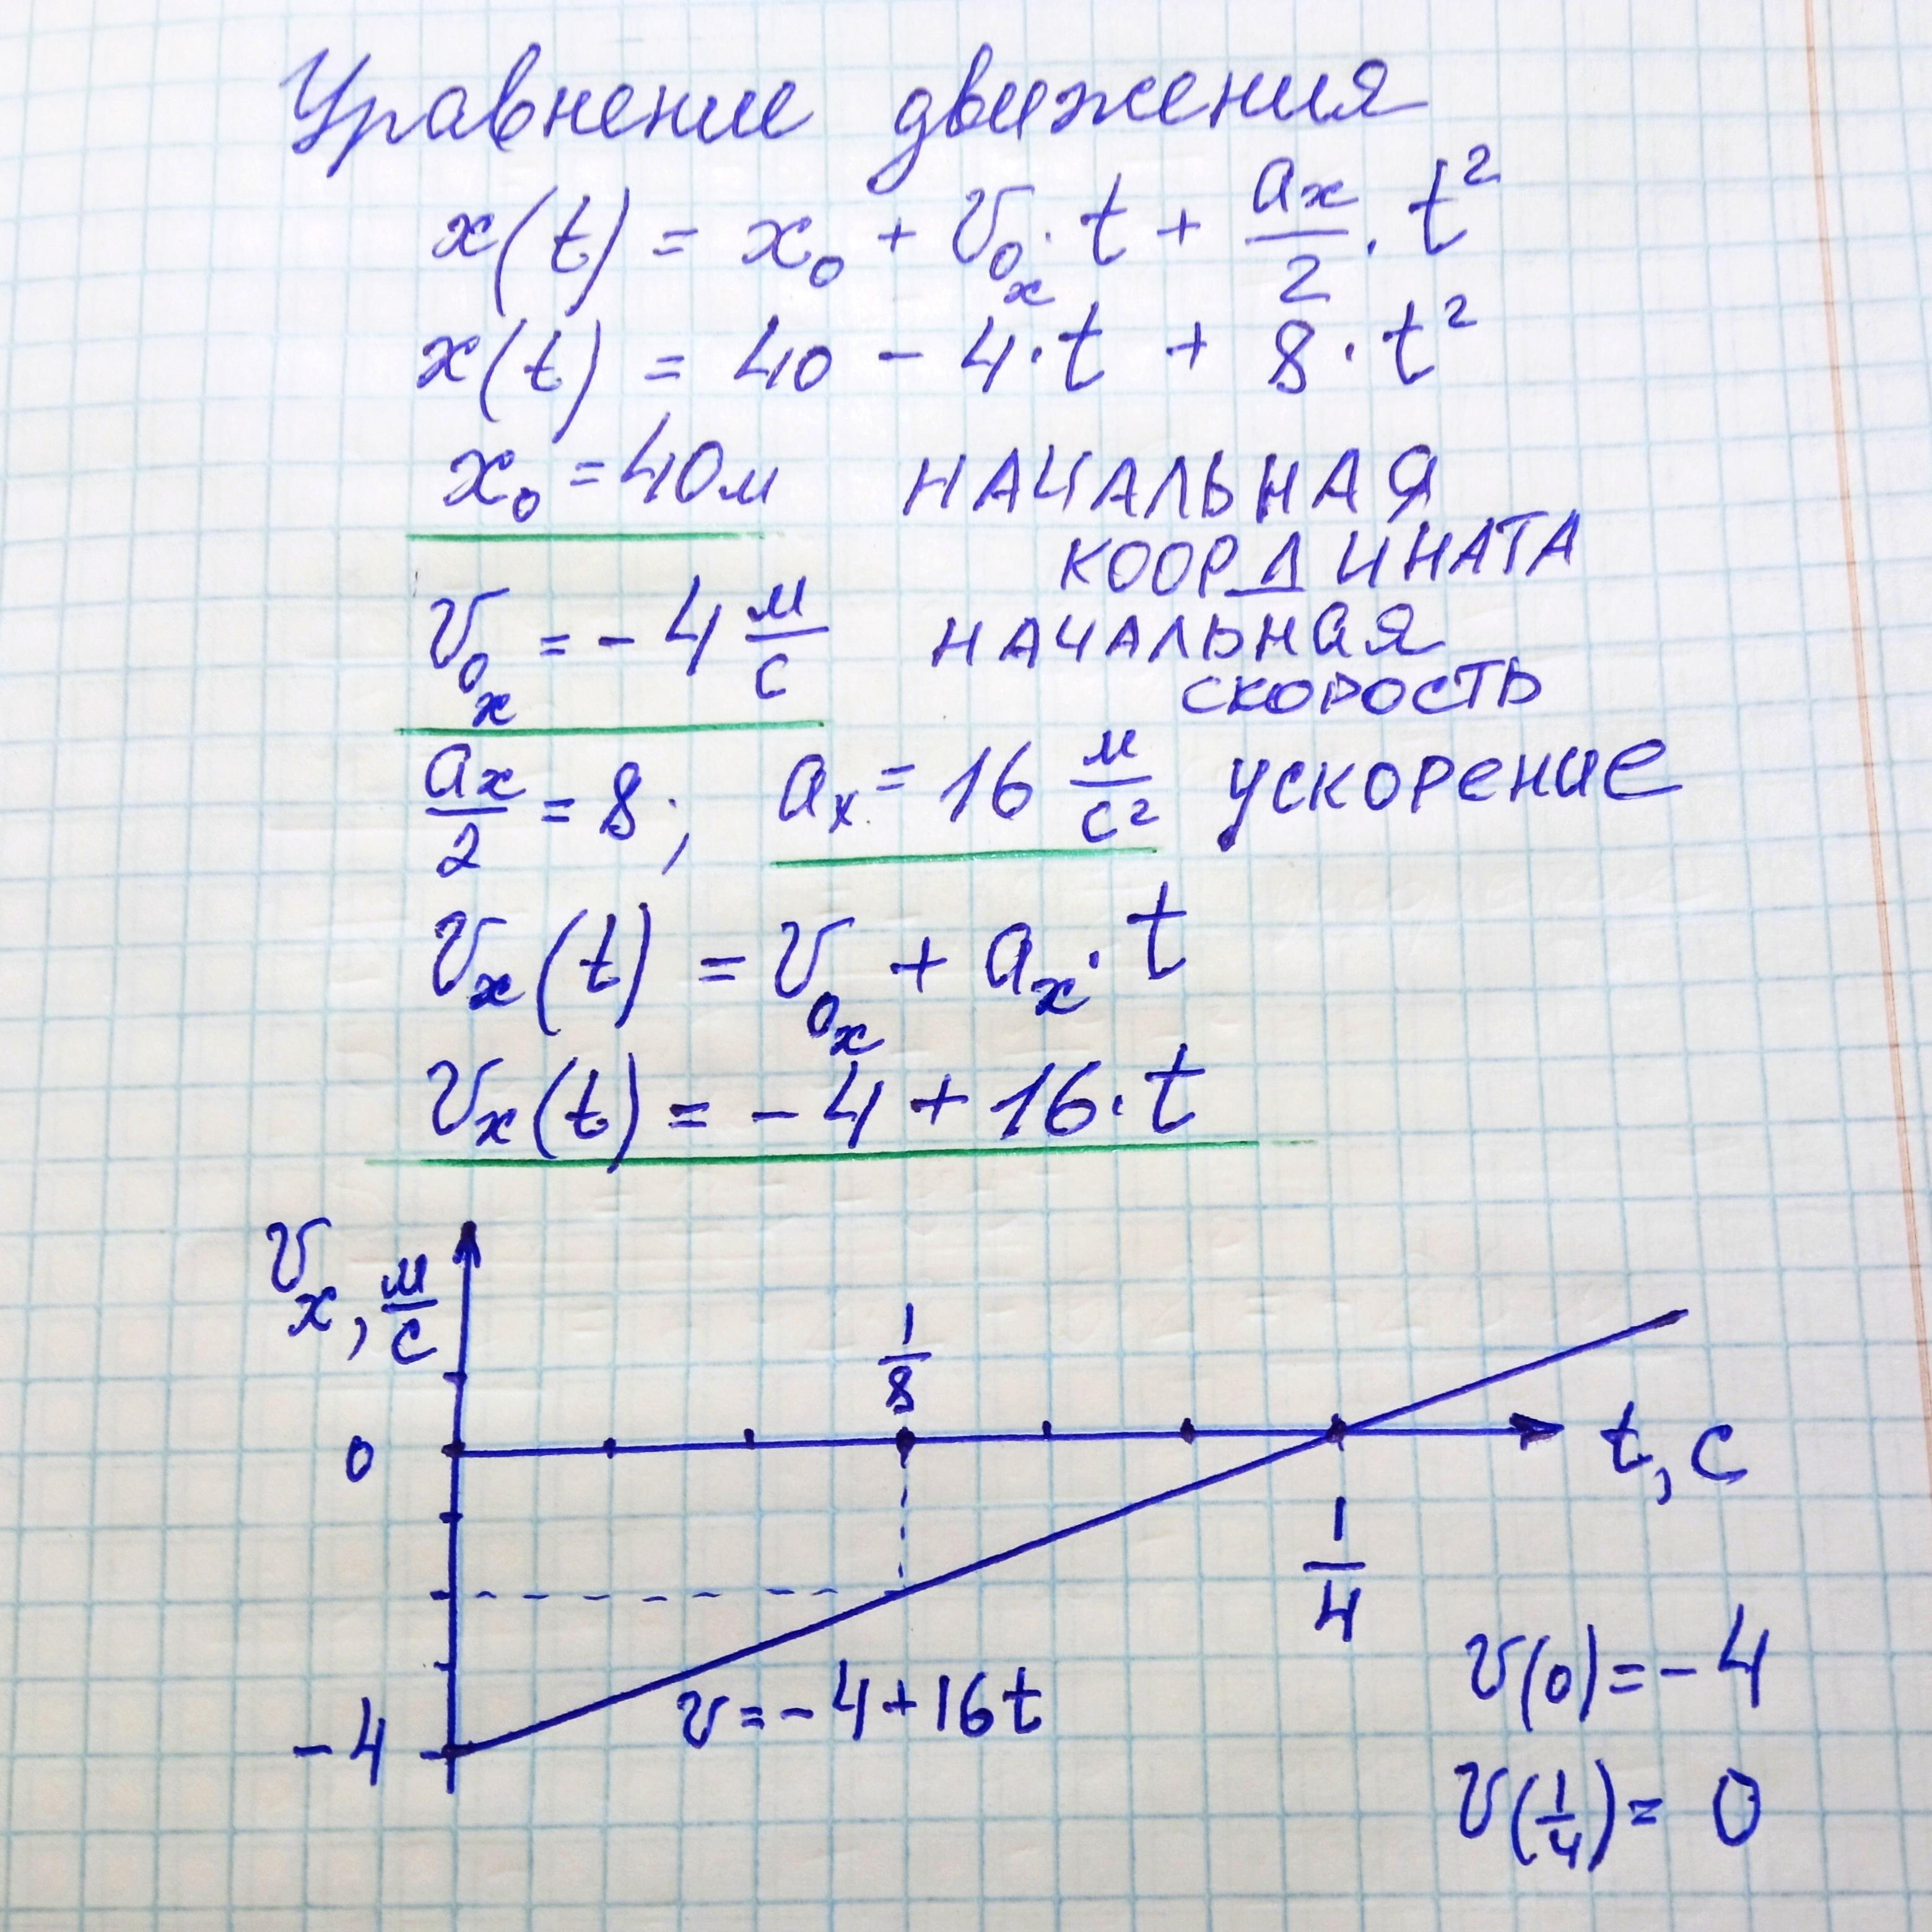 Уравнение движения
x(t) = x₀ + v₀ₓ · t + aₓ/2 · t²
x(t) = 40 - 4 · t + 8 · t²
x₀ = 40 м НАЧАЛЬНАЯ
КООРДИНАТА
v₀ₓ = - 4 м/с НАЧАЛЬНАЯ
СКОРОСТЬ
aₓ/2 = 8; aₓ = 16 м/с² ускорение
vₓ(t) = v₀ₓ + aₓ · t
vₓ(t) = - 4 + 16 · t
vₓ, м/с
1/8
0
t, с
1/4
v = - 4 + 16t
-4
v(0) = - 4
v(1/4) = 0